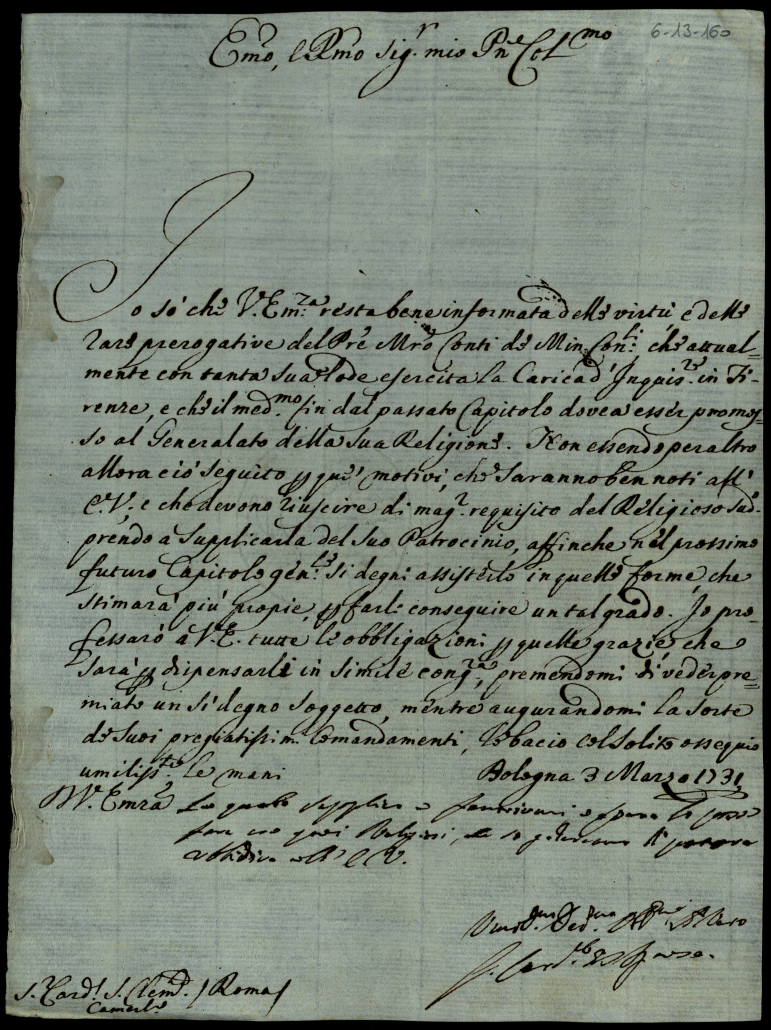 6-13-160
Emo, e Rmo Sig.r mio Pne Col.mo
Io sò che V. Em.za resta bene informata delle virtù, e delle
rare prerogative del Prê Mrô Conti de Min. Con.li, che attual=
mente con tanta sua lode esercita la Carica d'Inquis.re in Fi=
renze, e che il med.mo sin dal passato Capitolo dovea esser promos=
so al Generalato della sua Religione. Non essendo per altro
allora ciò seguito per que' motivi, che saranno ben noti all'
E.V., e che devono riuscire di mag.r requisito del Religioso sud.
prendo a supplicarla del suo Patrocinio, affinche nel prossimo
futuro Capitolo gen.le si degni assisterlo in quelle forme, che
stimarà più propie, per farle conseguire un tal grado. Io pro=
fessarò à V.E. tutte le obbligazioni per quelle grazie che
sarà per dispensarli in simile cong.ra, premendomi di veder pre=
miato un sì degno soggetto, mentre augurandomi la sorte
de suoi pregiatissim. Comandamenti, le bacio col solito ossequio
umiliss.te le mani Bologna 3 Marzo 1731
D V. Emza La quale supplico a
all' E V.
S. Card. S. Clem.te / Roma /
Camerl.o